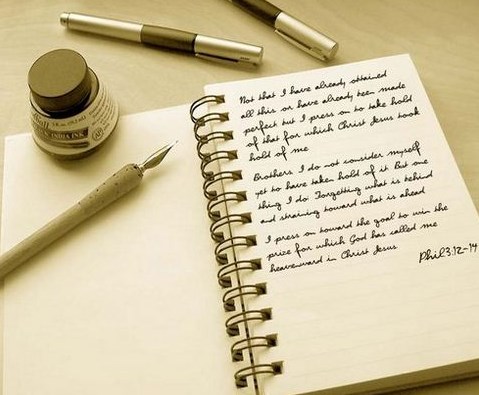 INDIA INK
Not that I have already obtained
all this or have already been made
perfect but I press on to take hold
of that for which Christ Jesus took
hold of me
Brothers I do not consider myself
yet to have taken hold of it But one
thing I do Forgetting what is behind
and straining toward what is ahead
I press on toward the goal to win the
prize for which God has called me
heavenward in Christ Jesus
Phil3:12-14